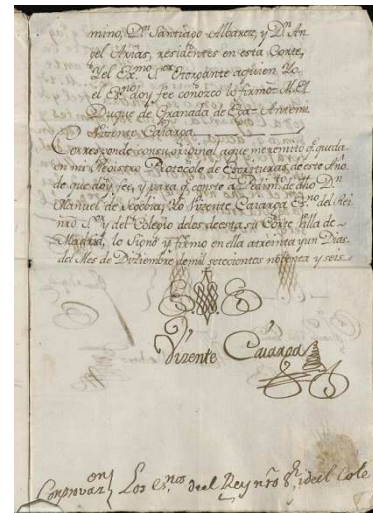 mino, Dn. Santiago Albarez, y Dn. An-
gel Arias, residentes en esta Corte,
Y el Exmo. Sor. Otorgante aquien Yo
el Esno. doy fee conozco lo firmó= M. El
Duque de Granada de Ega= Antemi
Vizente Caiarga
Corresponde consu original aque meremito q. queda
en mi Registro Protocolo de Escrituras de este Año
de que doy fee, y para q. conste a Pedimto. de dho Dn.
Manuel de Scobia, Yo Vizente Caiarga Esno. del Rei
nro. Sor. y del Colegio delos de esta su Corte, Villa de
Madrid, lo Signo y firmo en ella atreinta y un Dias
del Mes de Diziembre de mil setecientos nobenta y seis
Vizente Caiarga
Conprovazon Los esnos. del Rey nro Sr. i del Cole